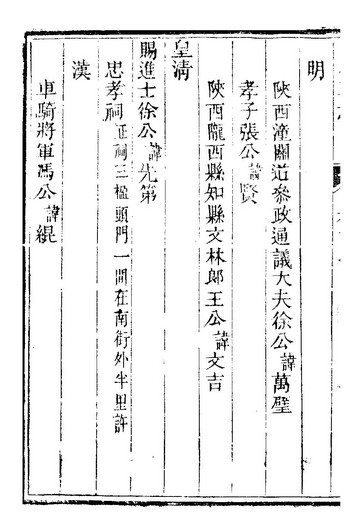 明
陝西潼關道參政通議大夫徐公諱萬璧
孝子張公諱賢
陝西隴西縣知縣文林郎王公諱文吉
皇清
賜進士徐公諱先第
忠孝祠正祠三楹頭門一間在南街外半里許
漢
車騎將軍馮公諱緄